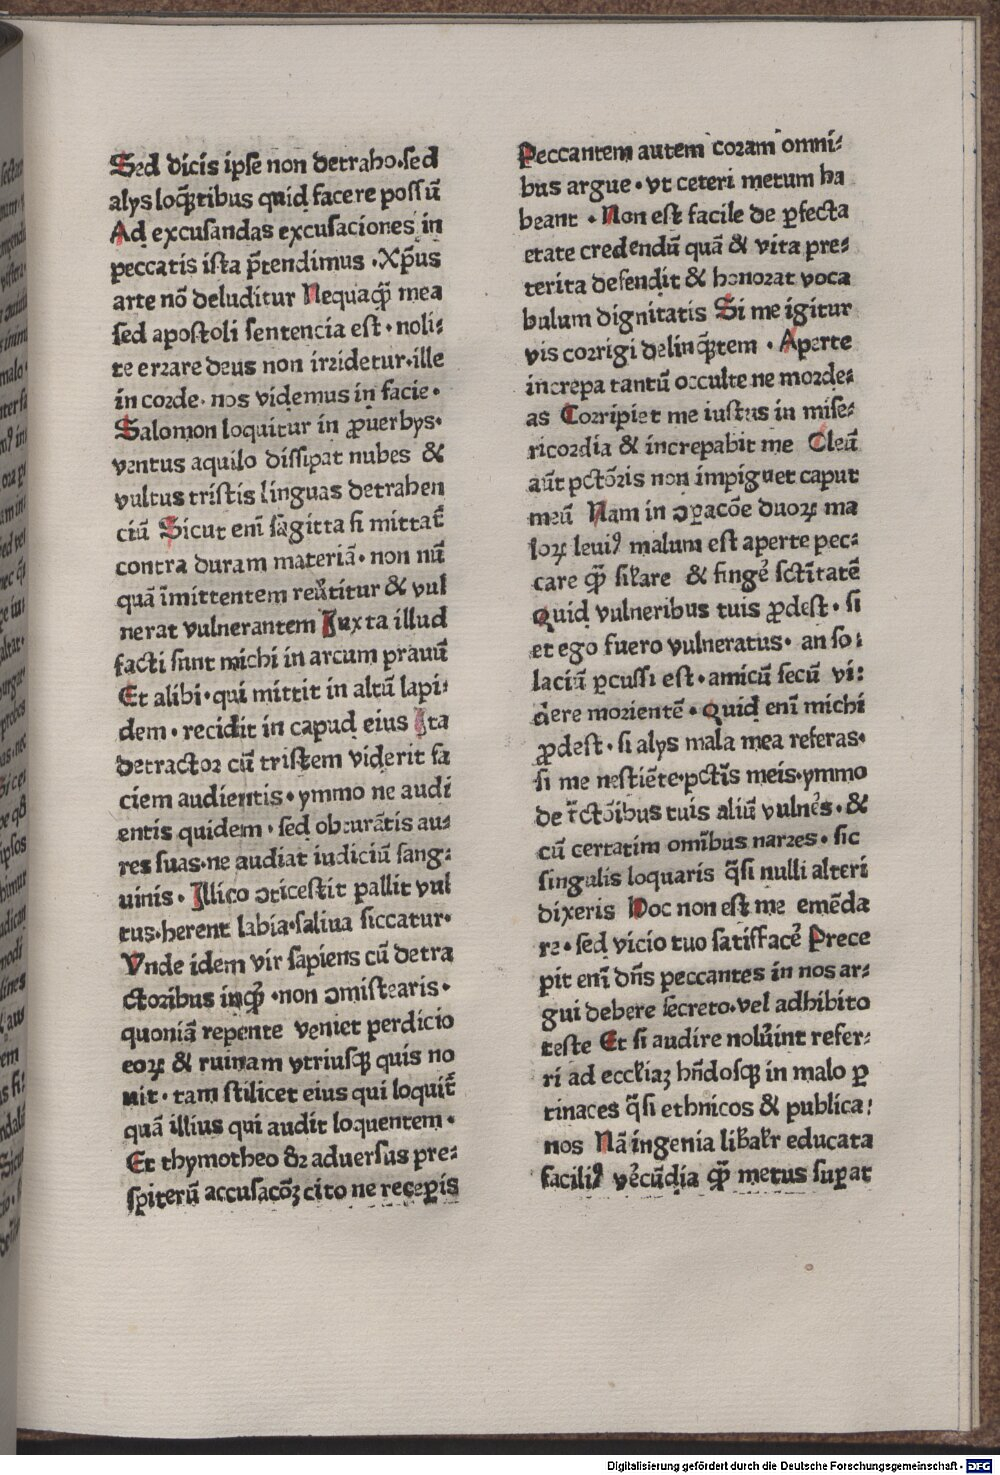 Sed dicis ipse non detraho·sed
alys loq̄ꝫtibus quid facere possū
Ad excusandas excusaciones in
peccatis ista p̄tendimus ·Xp̄us
arte nō deluditur Nequaq̄ꝫ mea
sed apostoli sentencia est · noli⸗
te errare deus non irridetur·ille
in corde· nos videmus in facie·
Salomon loquitur in ꝓuerbys·
ventus aquilo dissipat nubes &
vultus tristis linguas detrahen
ciū Sicut enī sagitta si mittat̄
contra duram materiā· non nū
quā īmittentem reūtitur & vul
nerat vulnerantem Juxta illud
facti sunt michi in arcum prauū
Et alibi·qui mittit in altū lapi⸗
dem · recidit in capud eius Ita
detractor cū tristem viderit fa
ciem audientis·ymmo ne audi
entis quidem · sed obturātis au⸗
res suas·ne audiat iudiciū sang⸗
uinis · Illico ↄticestit pallit vul
tus·herent labia·saliua siccatur·
Vnde idem vir sapiens cū detra
ctoribus inqꝫ̄ ·non ↄmistearis·
quoniā repente veniet perdicio
eoꝝ & ruinam vtriusqꝫ quis no
uit · tam stilicet eius qui loquit̄
quā illius qui audit loquentem ·
Et thymotheo ⁊ aduersus pre⸗
spiterū accusacōꝫ cito ne receperis
Peccantem autem coram omni⸗
bus argue · vt ceteri metum ha
beant · Non est facile de ꝑfecta
etate credendū quā & vita pre⸗
terita defendit & honorat voca
bulum dignitatis Si me igitur
vis corrigi delinq̄ꝫtem · Aperte
increpa tantū occulte ne morde⸗
as Corripiet me iustus in mise⸗
ricordia & increpabit me Oleū
aūt pctōris non impiguet caput
meū Nam in ↄꝑacōe duoꝝ ma
loꝝ leuiꝰ malum est aperte pec⸗
care qꝫ̄ sil̄are & fingē sctītatē
Quid vulneribus tuis ꝓdest · si
et ego fuero vulneratus· an so⸗
laciū ꝑcussi est·amicū secū vi⸗
dere morientē · Quid enī michi
ꝓdest · si alys mala mea referas·
si me nestiēte·pctīs meis·ymmo
de tctōībus tuis aliū vulnēs · &
cū certatim omībus narres · sic
singulis loquaris q̄si nulli alteri
dixeris Hoc non est me emēda
re · sed vicio tuo satisfacē Prece
pit enī dn̄s peccantes in nos ar⸗
gui debere secreto·vel adhibito
teste Et si audire nolūint refer⸗
ri ad eccl̄iaꝫ hn̄dosqꝫ in malo ꝑ
tinaces q̄si ethnicos & publica⸗
nos Nā ingenia lib̄al̄r educata
faciliꝰ vēcūdia qꝫ̄ metus suꝑat
Digitalisierung gefördert durch die Deutsche Forschungsgemeinschaft · DFG